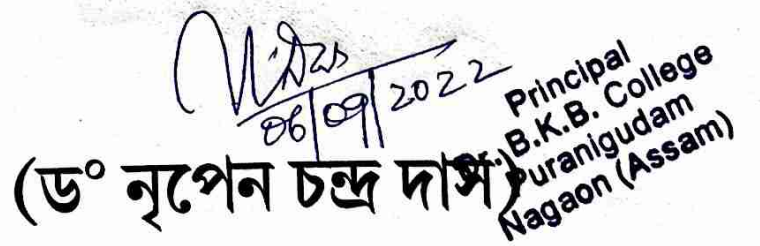 N.Das
06/09/2022
(ড° নৃপেন চন্দ্ৰ দাস)
Principal
Dr. B.K.B. College
Puranigudam
Nagaon (Assam)